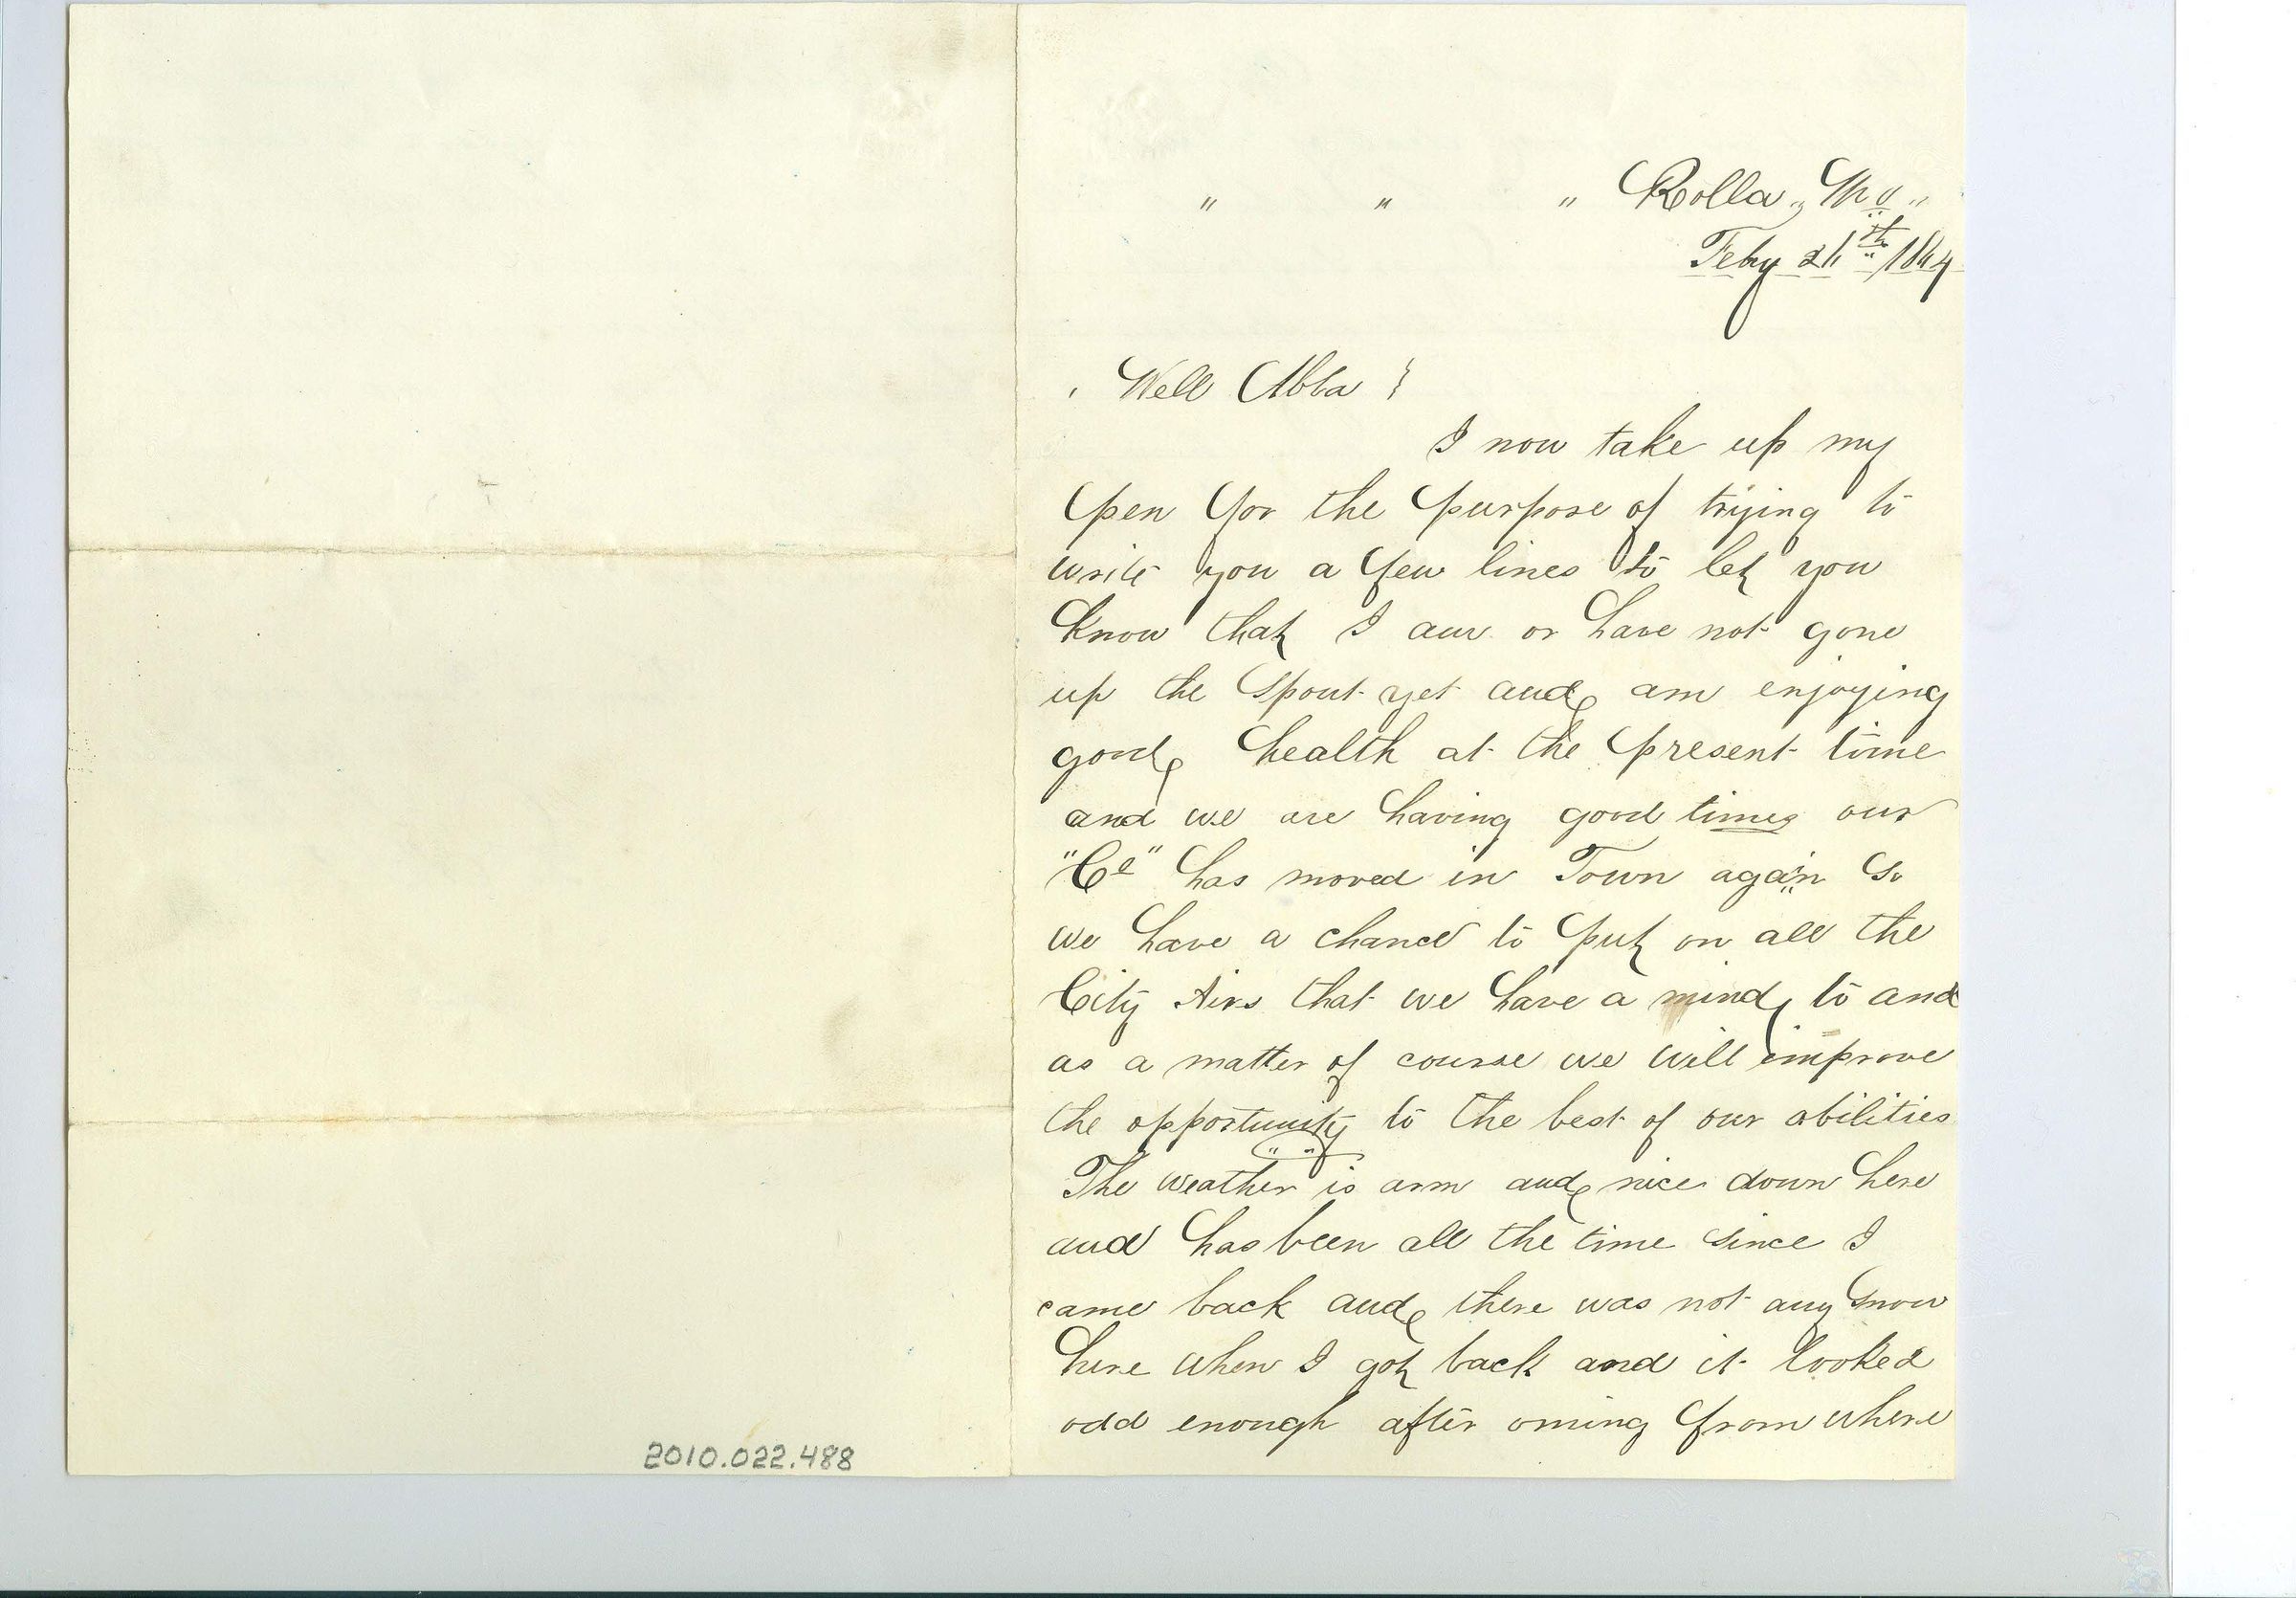 " " " Rolla, Mo "
Feby 21th 1864
Well Abba }
I now take up my
pen for the purpose of trying to
write you a few lines to let you
know that I am or have not gone
up the spout yet and am enjoying
good health at the present time
and we are having good times our
"Co" has moved in Town again so
we have a chance to put on all the
City Airs that we have a mind to and
as a matter of course we will improve
the opportunity to the best of our abilities
The weather is arm and nice down here
and has been all the time since I
came back and there was not any snow
here when I got back and it looked
odd enough after oming from where
2010.022.488